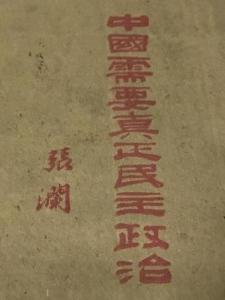 中國需要真正民主政治
張瀾